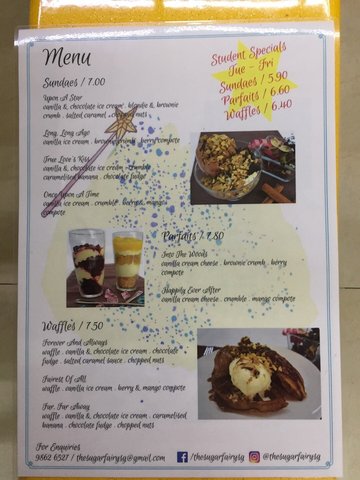 Menu
Student Specials
Tue - Fri
Sundaes / 5.90
Parfaits / 6.60
Waffles / 6.40
Sundaes / 7.00
Upon A Star
vanilla & chocolate ice cream . blondie & brownie
crumb . salted caramel . chopped nuts
Long, Long Ago
vanilla ice cream . brownie crumb . berry compote
True Love's Kiss
vanilla & chocolate ice cream . crumble
caramelised banana . chocolate fudge
Once Upon A Time
vanilla ice cream . crumble . berry & mango
compote
Parfaits / 7.80
Into The Woods
vanilla cream cheese . brownie crumb . berry
compote
Happily Ever After
vanilla cream cheese . crumble . mango compote
Waffles / 7.50
Forever And Always
waffle . vanilla & chocolate ice cream . chocolate
fudge . salted caramel sauce . chopped nuts
Fairest Of All
waffle . vanilla ice cream . berry & mango compote
Far, Far Away
waffle . vanilla & chocolate ice cream . caramelised
banana . chocolate fudge . chopped nuts
For Enquiries
9862 6527 / thesugarfairysg@gmail.com /thesugarfairysg @thesugarfairysg